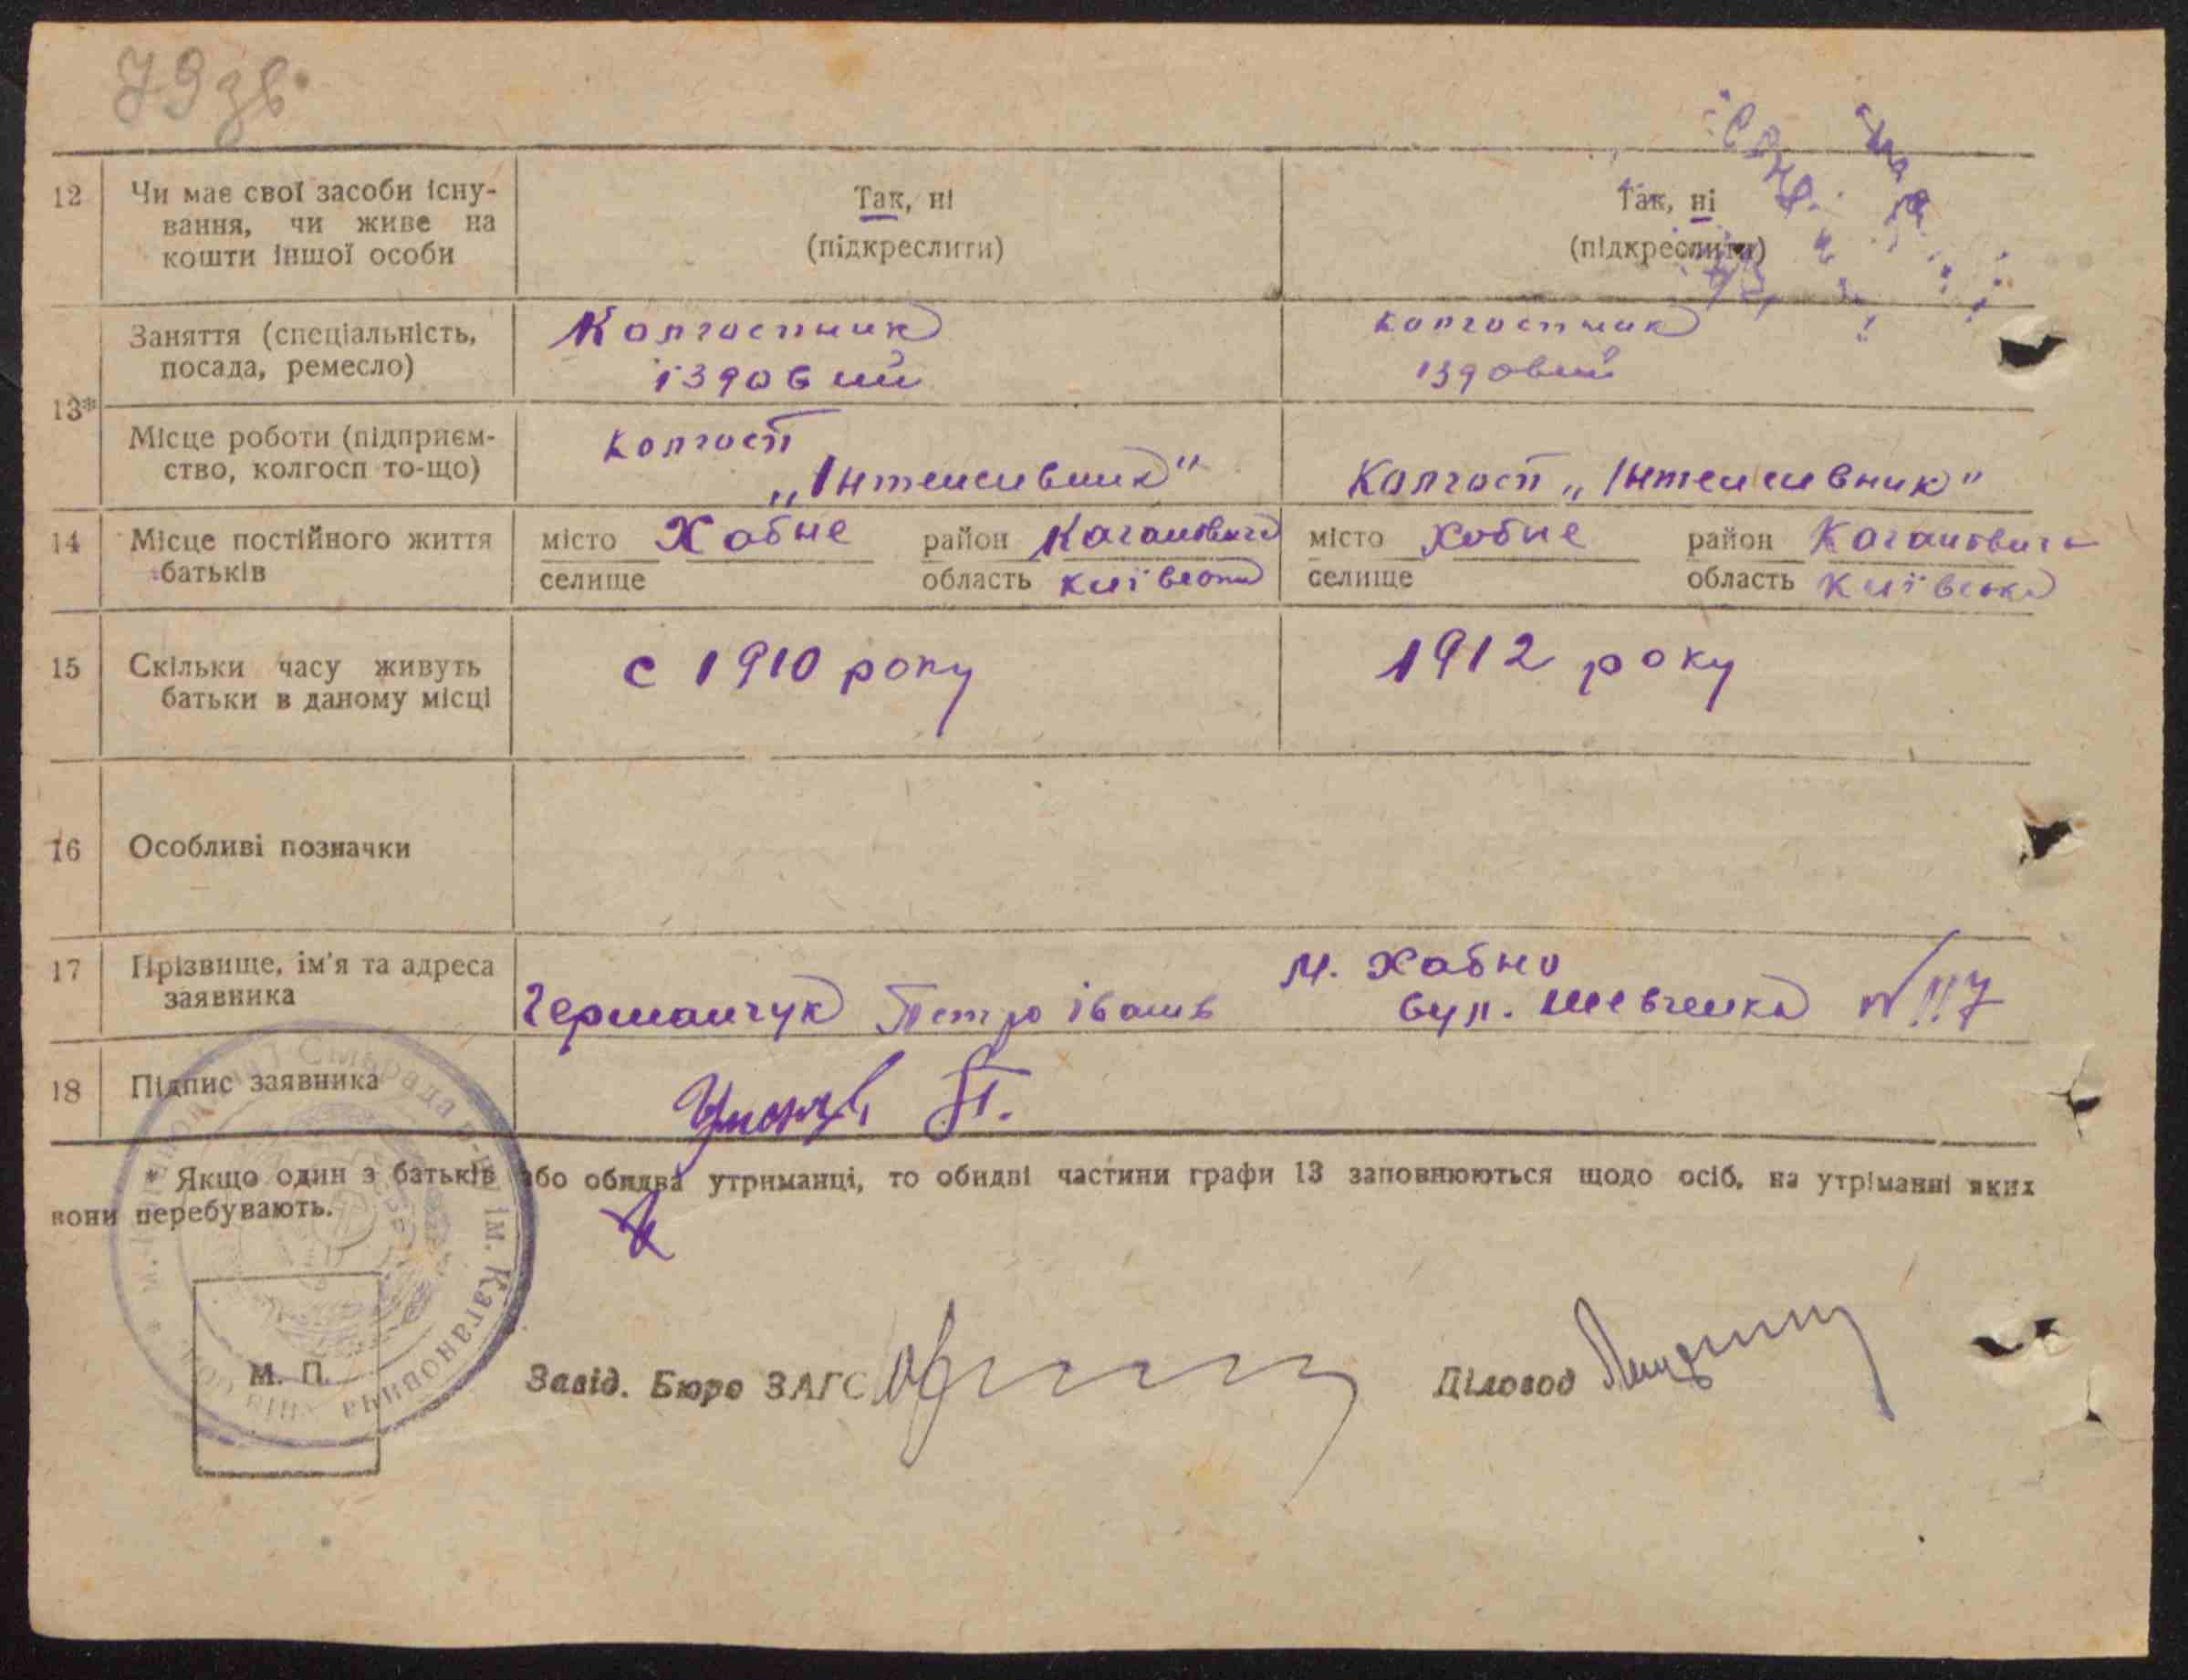 79 зв.
12 Чи має свої засоби існу-
вання, чи живе на
кошти іншої особи
Так, ні
(підкреслити)
Так, ні
(підкреслити)
13*
Заняття (спеціальність,
посада, ремесло)
Колгоспник
їздовий
колгоспник
їздовий
Місце роботи (підприєм-
ство, колгосп то-що)
колгосп
„Інтенсивник"
Колгосп „Інтенсивник"
14 Місце постійного життя
батьків
місто Хабне район Кагановича
селище область Київська
місто Хабне район Кагановича
селище область Київська
15 Скільки часу живуть
батьки в даному місці
с 1910 року
1912 року
16 Особливі позначки
17 Прізвище, ім'я та адреса
заявника
Германчук Петро Іванів
м. Хабно
вул. Шевченка № 117
18 Підпис заявника
П.
* Якщо один з батьків або обидва утриманці, то обидві частини графи 13 заповнюються щодо осіб, на утриманні яких
вони перебувають.
М. П.
Завід. Бюро ЗАГС
Діловод
ім. Кагановича